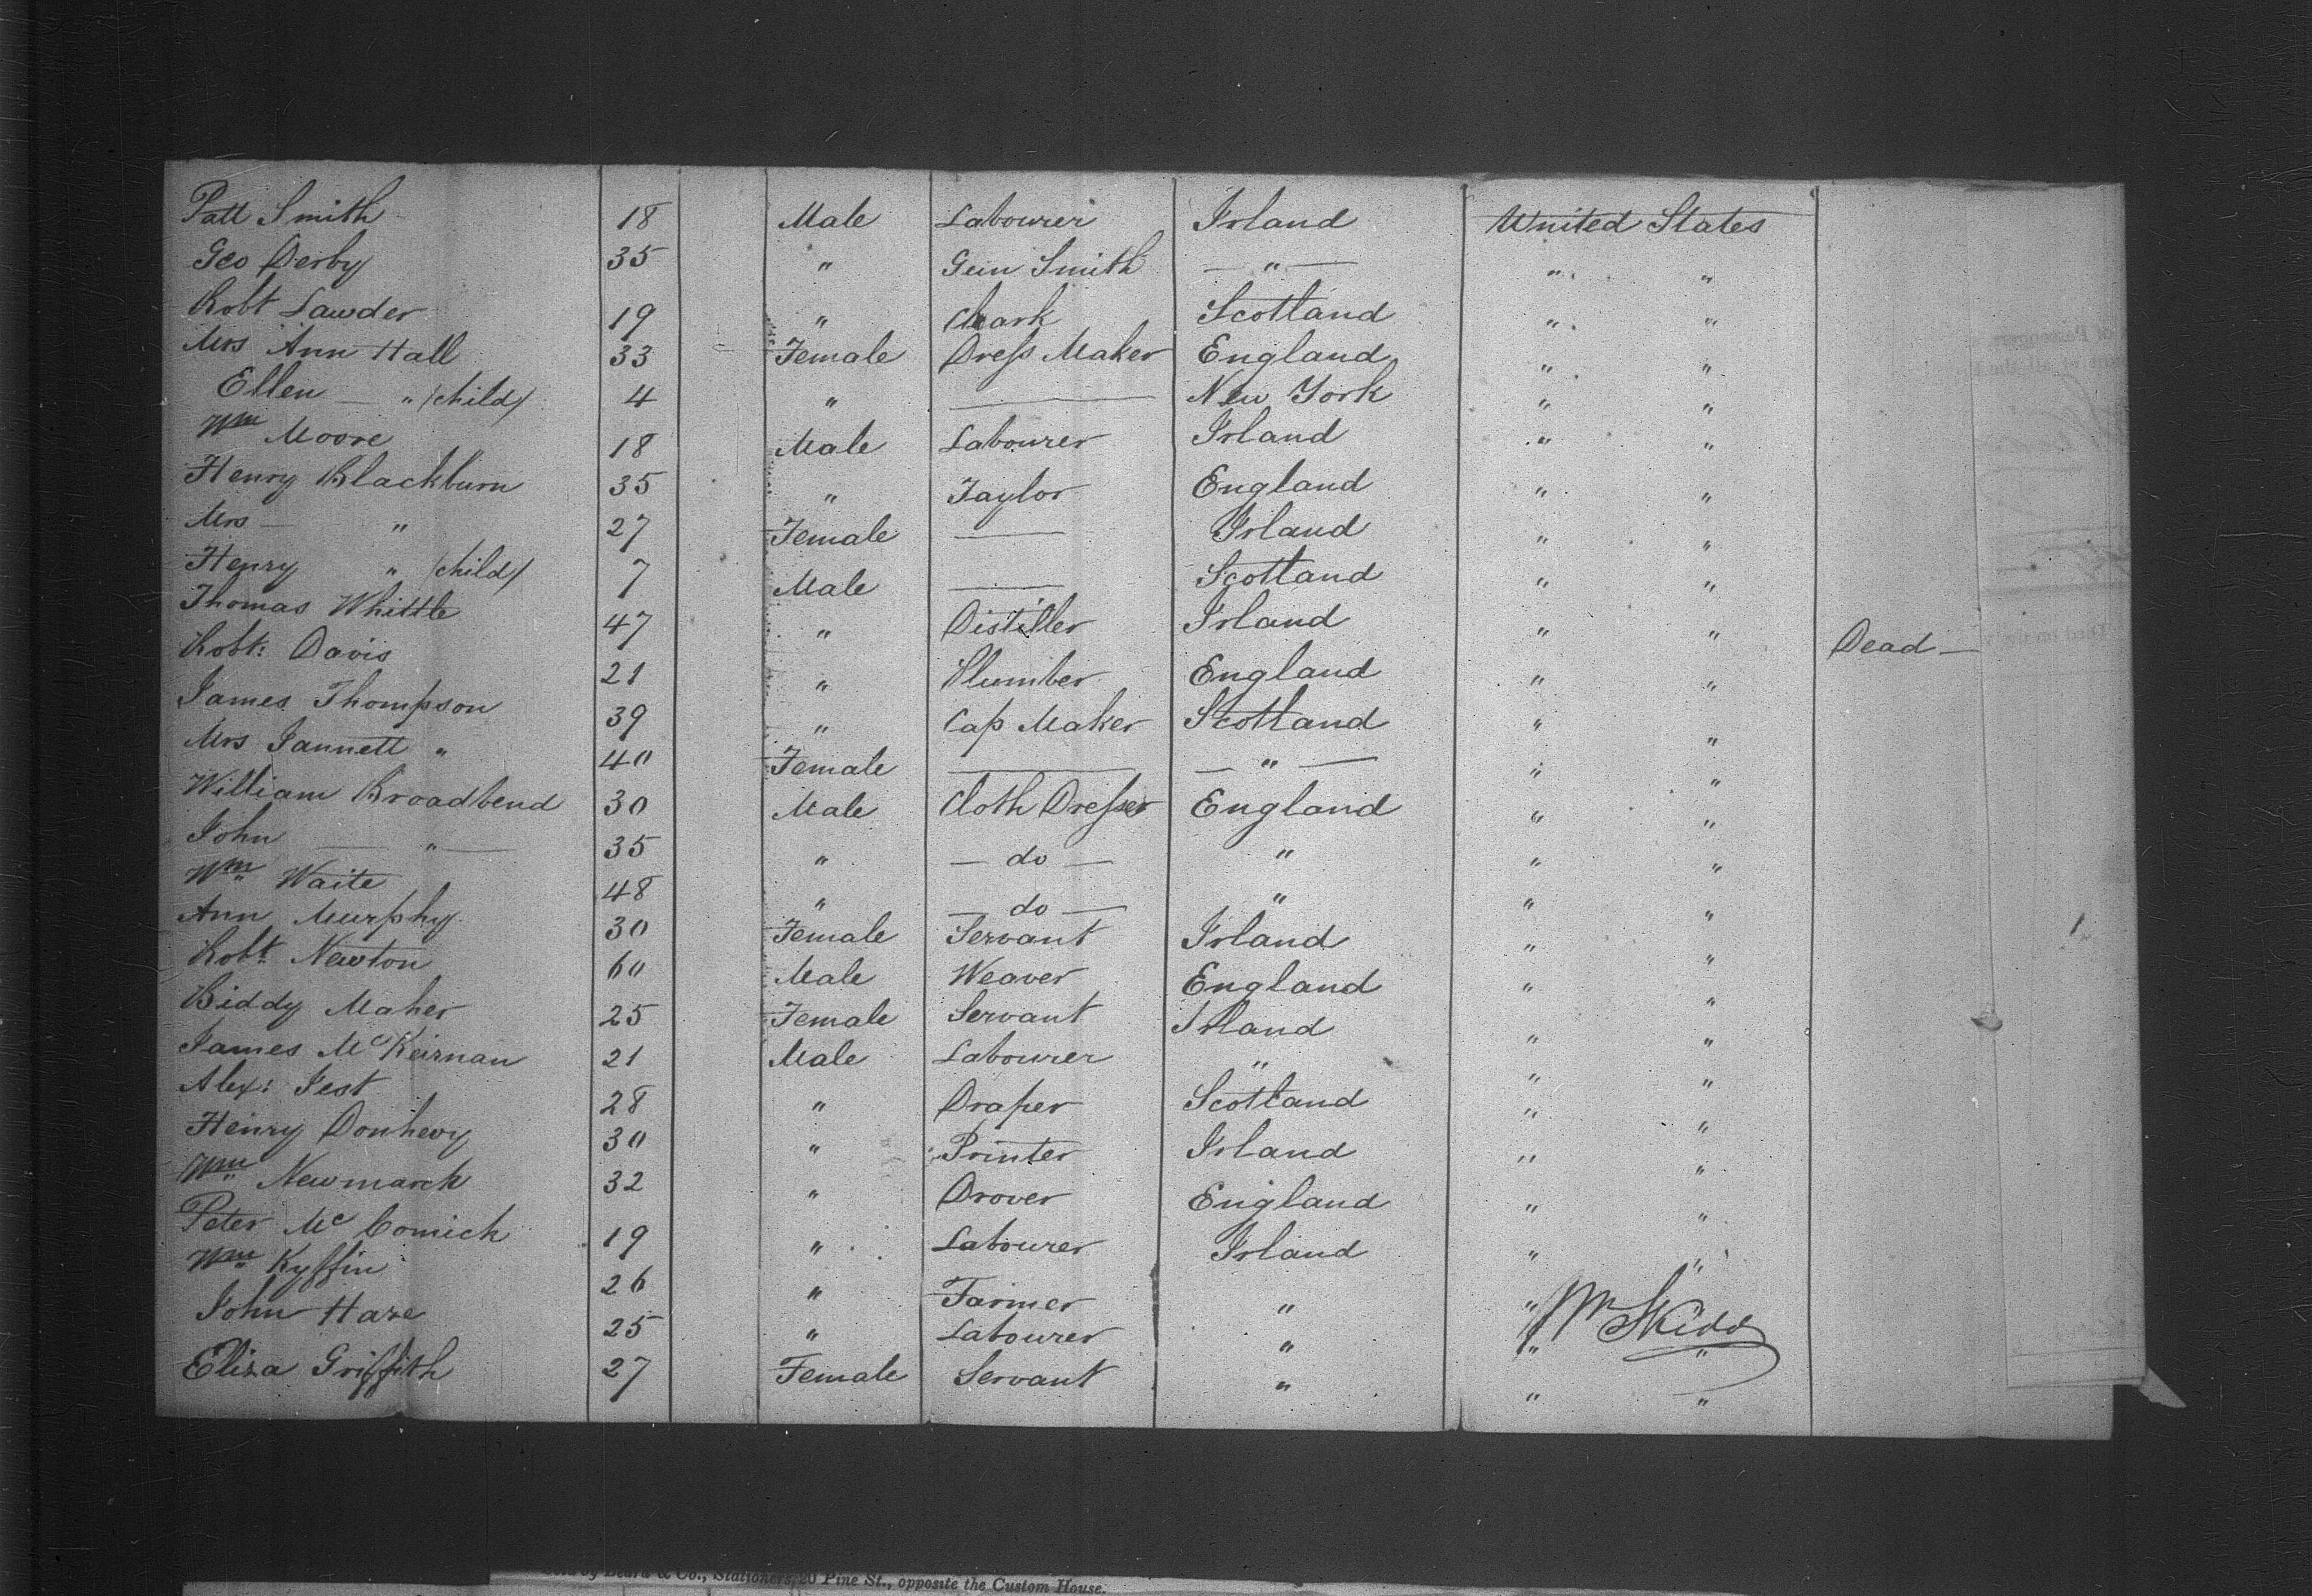 Patt Smith 18 Male Labourer Irland United States
Geo Derby 35 " Gun Smith — " — " "
Robt Lawder 19 " Clark Scotland " "
Mrs Ann Hall 33 Female Dress Maker England " "
Ellen — " (child) 4 " — New York " "
Wm Moore 18 Male Labourer Irland " "
Henry Blackburn 35 " Taylor England " "
Mrs — " 27 Female — Irland " "
Henry " (child) 7 Male — Scotland " "
Thomas Whittle 47 " Distiller Irland " " Dead —
Robt: Davis 21 " Plumber England " "
James Thompson 39 " Cap Maker Scotland " "
Mrs Jannett " 40 Female — — " — " "
William Broadbend 30 Male Cloth Dresser England " "
John — " — 35 " — do — " " "
Wm Waite 48 " — do — " " "
Ann Murphy 30 Female Servant Irland " "
Robt Newton 60 Male Weaver England " "
Biddy Maher 25 Female Servant Irland " "
James McKeirnan 21 Male Labourer " " "
Alex: Jest 28 " Draper Scotland " "
Henry Donhevy 30 " Printer Irland " "
Wm Newmarch 32 " Drover England " "
Peter Mc Comick 19 " Labourer Irland " "
Wm Kyffin 26 " Farmer " " "
Skidd
John Hare 25 " Labourer " " "
Eliza Griffith 27 Female Servant " " "
& Co., Stationers, 20 Pine St., opposite the Custom House.